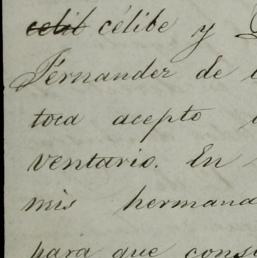 celil célibe y
Férnander de
toca acepto
ventario. En
mis hermana
para que cons